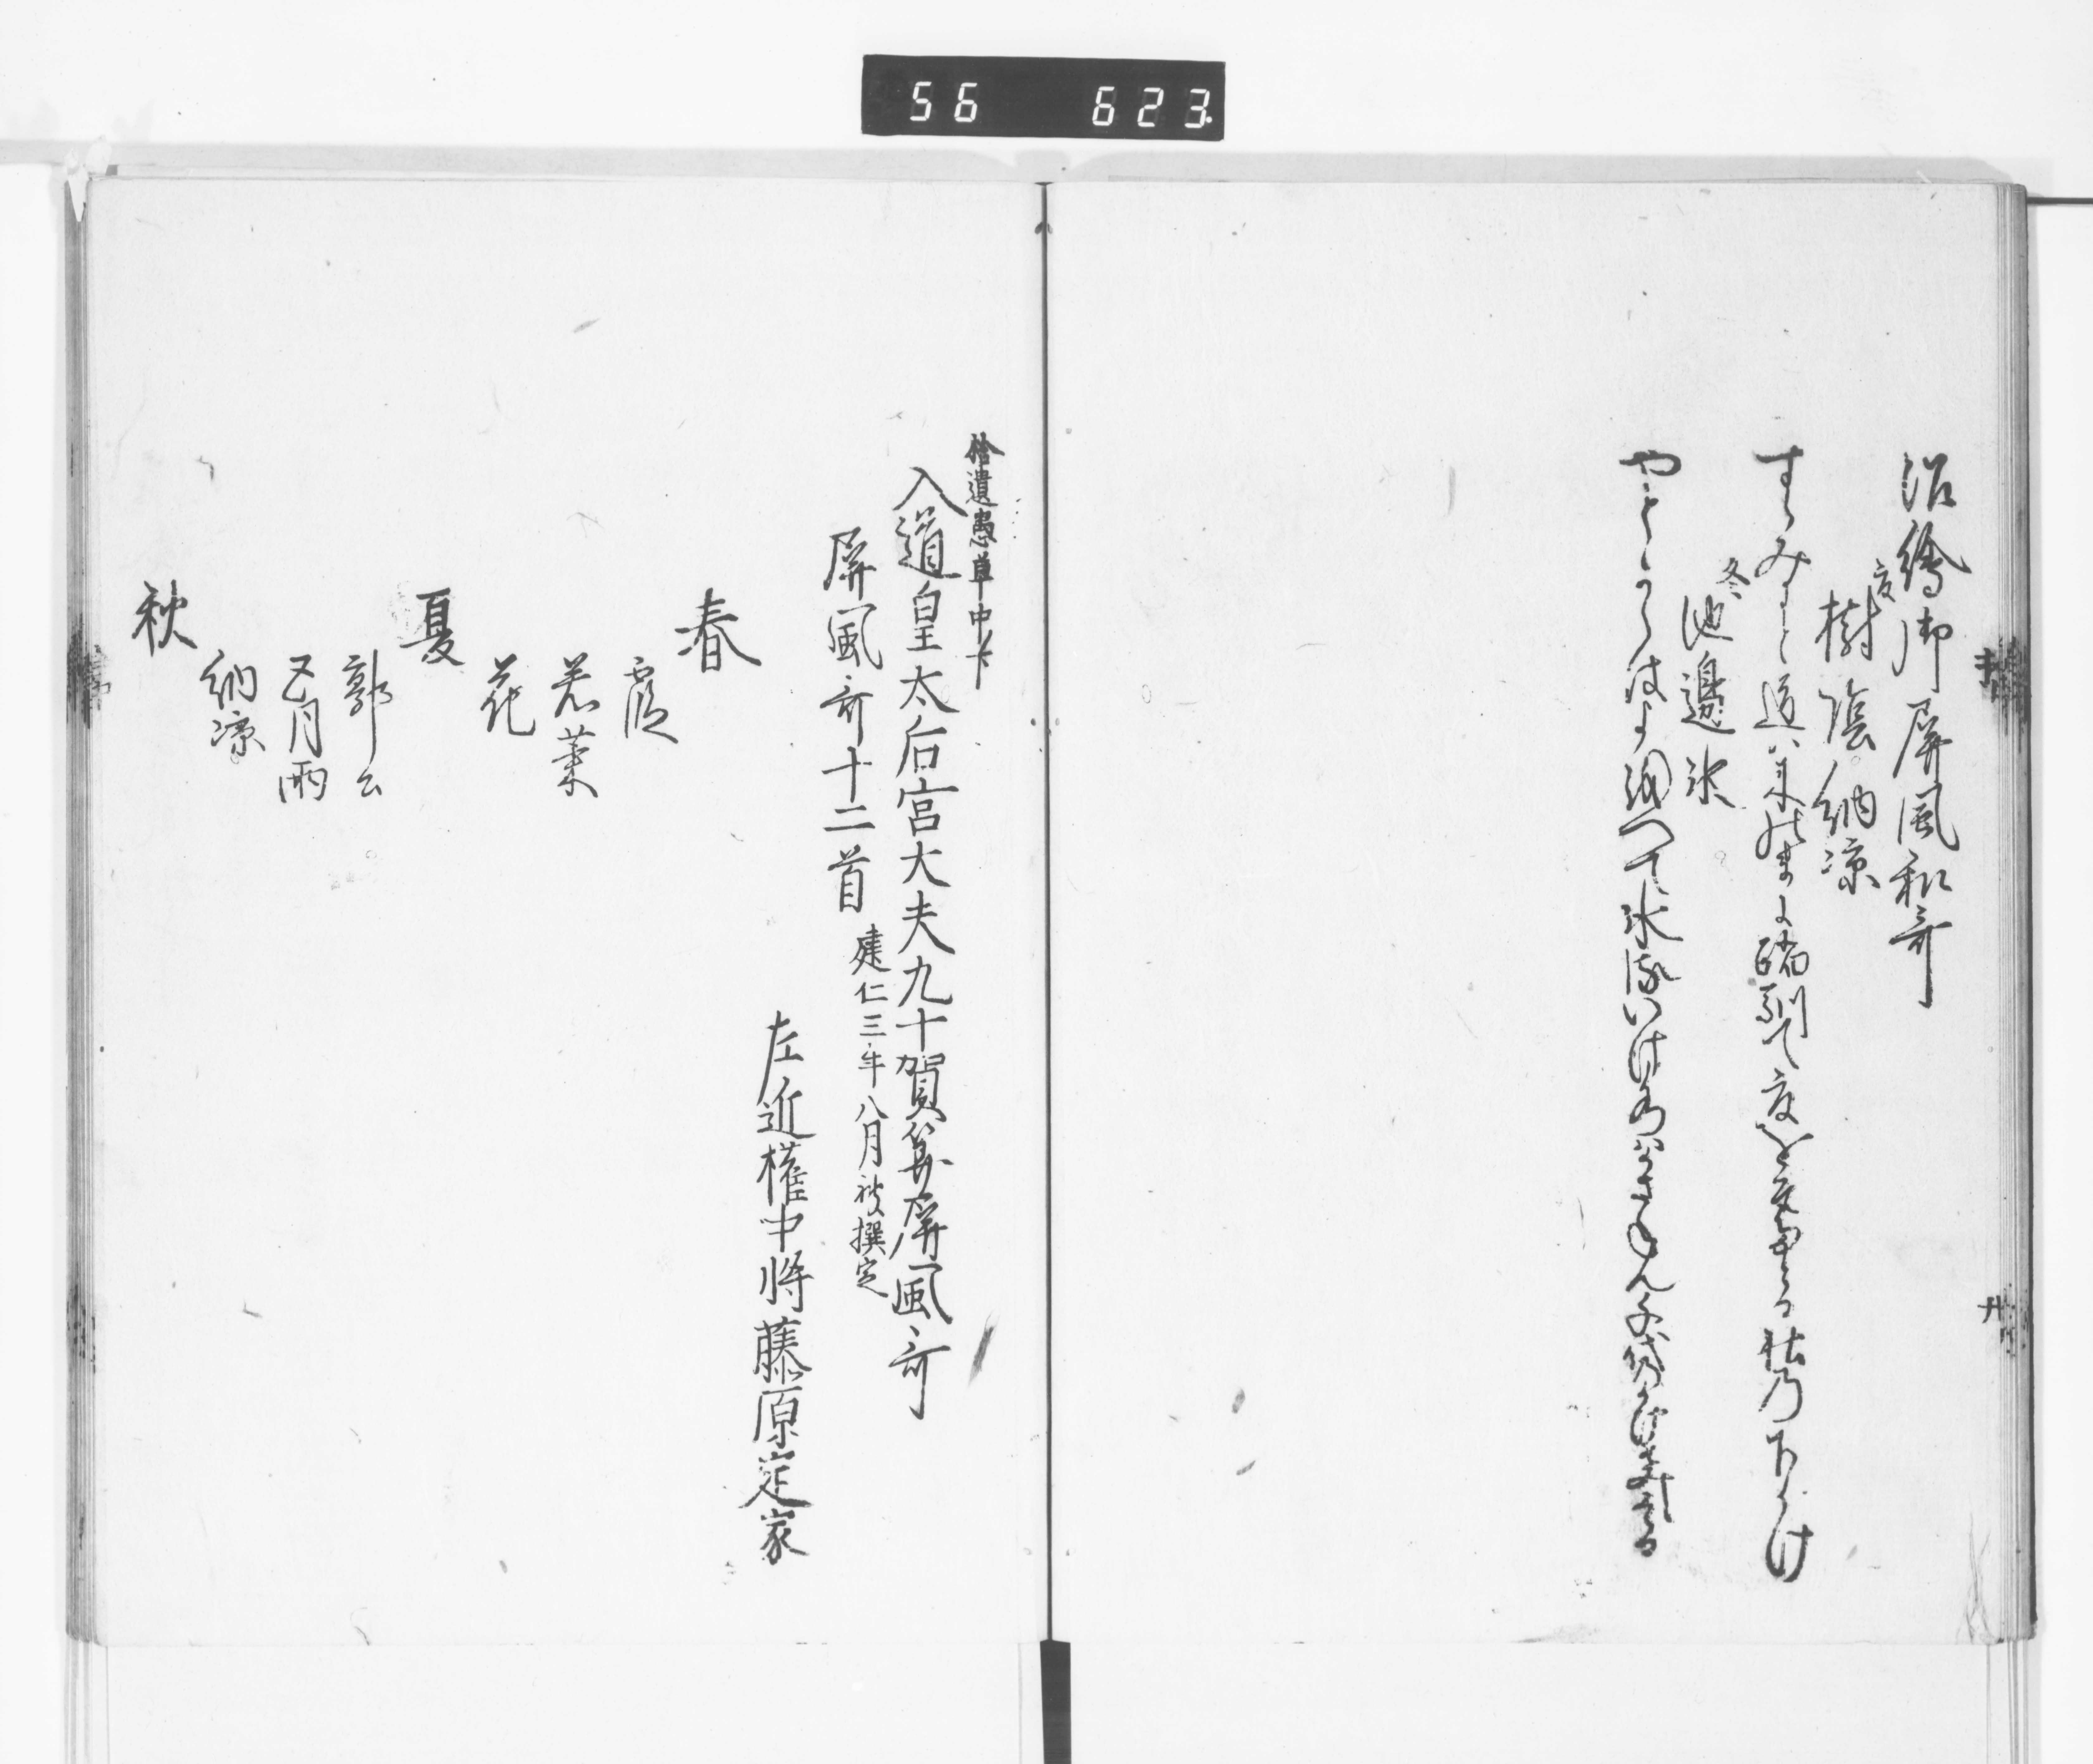 56 623.
泥繪御屏風和哥
夏
樹陰納凉
すゝみにと道ハ木のまに踏馴て夏をそたとる杜乃下かけ
冬
池邊氷
拾遺愚草中
入道皇太后宮大夫九十賀算屏風哥
屏風哥十二首
建仁三年八月被撰定
左近権中将藤原定家
春
霞
若菜
花
夏
郭公
五月雨
納凉
秋